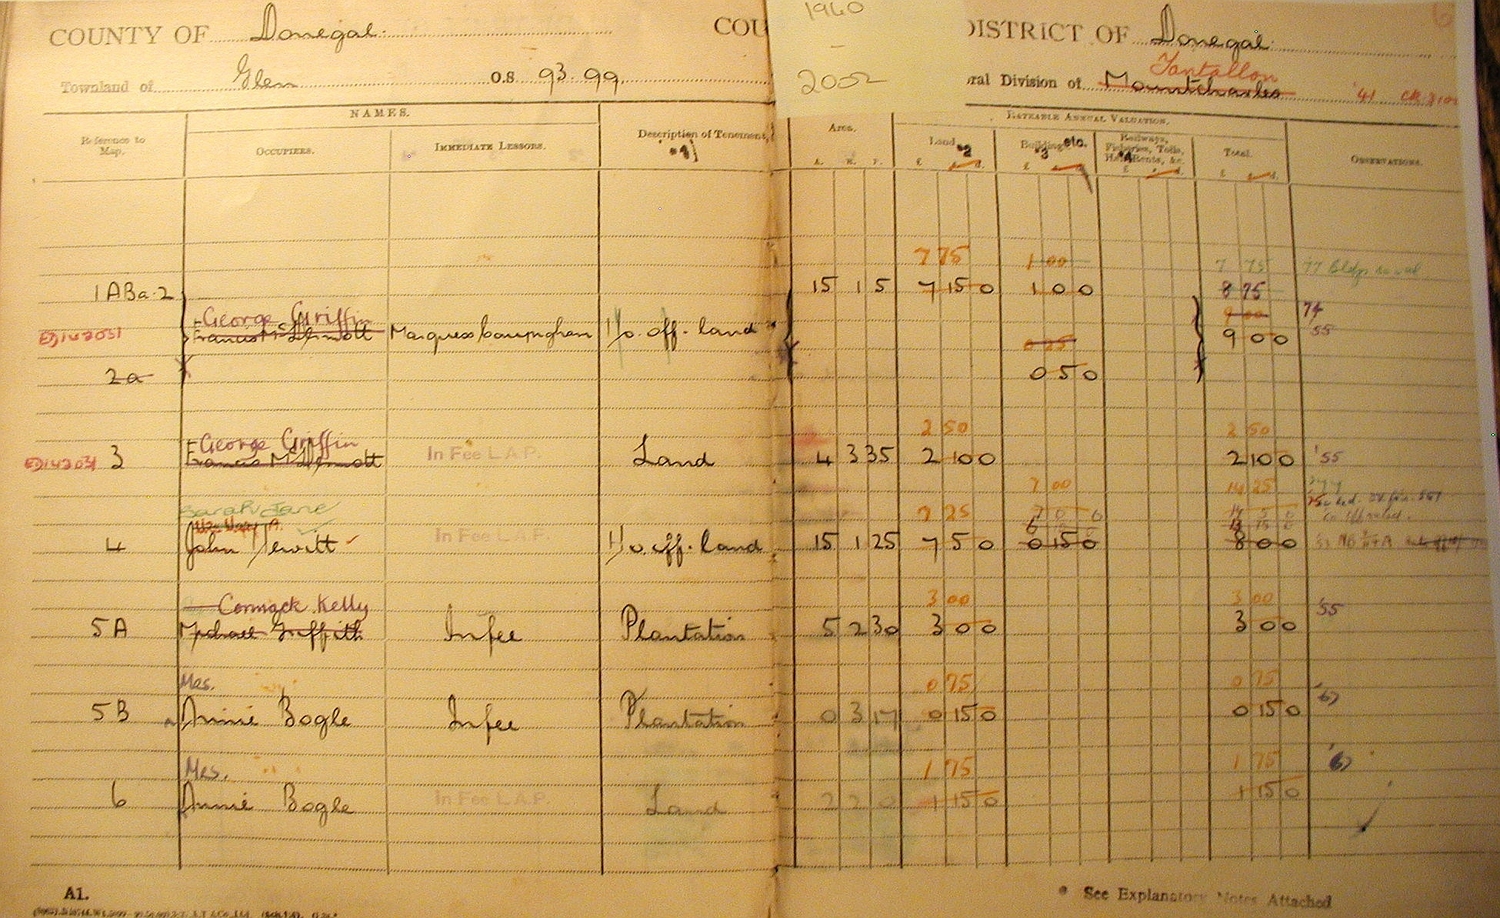 1940
-
2002
COUNTY OF Donegal. COU DISTRICT OF Donegal
Townland of Glen O.S. 93.99 ral Division of Mountcharles Tantallon '41
NAMES. RATEABLE ANNUAL VALUATION.
Reference to Map. OCCUPIERS. IMMEDIATE LESSORS. Description of Tenement, *1 Area. Land *2 Buildings etc. *3 Railways, Fisheries, Tolls, Half Rents, &c. *4 Total. OBSERVATIONS.
A. R. P. £ d. £ £ d. £ d.
7 75 1 00 7 75 '77 Bldgs
1ABa.2 15 1 5 7 15 0 1 0 0 8 75
George Griffin 9 00 74
Francis McDermott Marquess Conyngham H. o. off. land 9 0 0 '55
0 25
2a 0 5 0
George Griffin 2 50 2 50
3 Francis McDermott In Fee L.A.P. Land 4 3 35 2 10 0 2 10 0 '55
7 00 14 25
Sarah Jane 7 25
4 John Hewitt In Fee L.A.P. H. o. off. land 15 1 25 7 5 0 0 15 0 8 0 0
Cormack Kelly 3 00 3 00 '55
5A Michael Griffith In fee Plantation 5 2 30 3 0 0 3 0 0
Mrs. 0 75 0 75
5B Annie Bogle In fee Plantation 0 3 17 0 15 0 0 15 0 '67
Mrs. 1 75 1 75 '67
6 Annie Bogle In Fee L.A.P. Land 2 2 0 1 15 0 1 15 0
A1. * See Explanatory Notes Attached